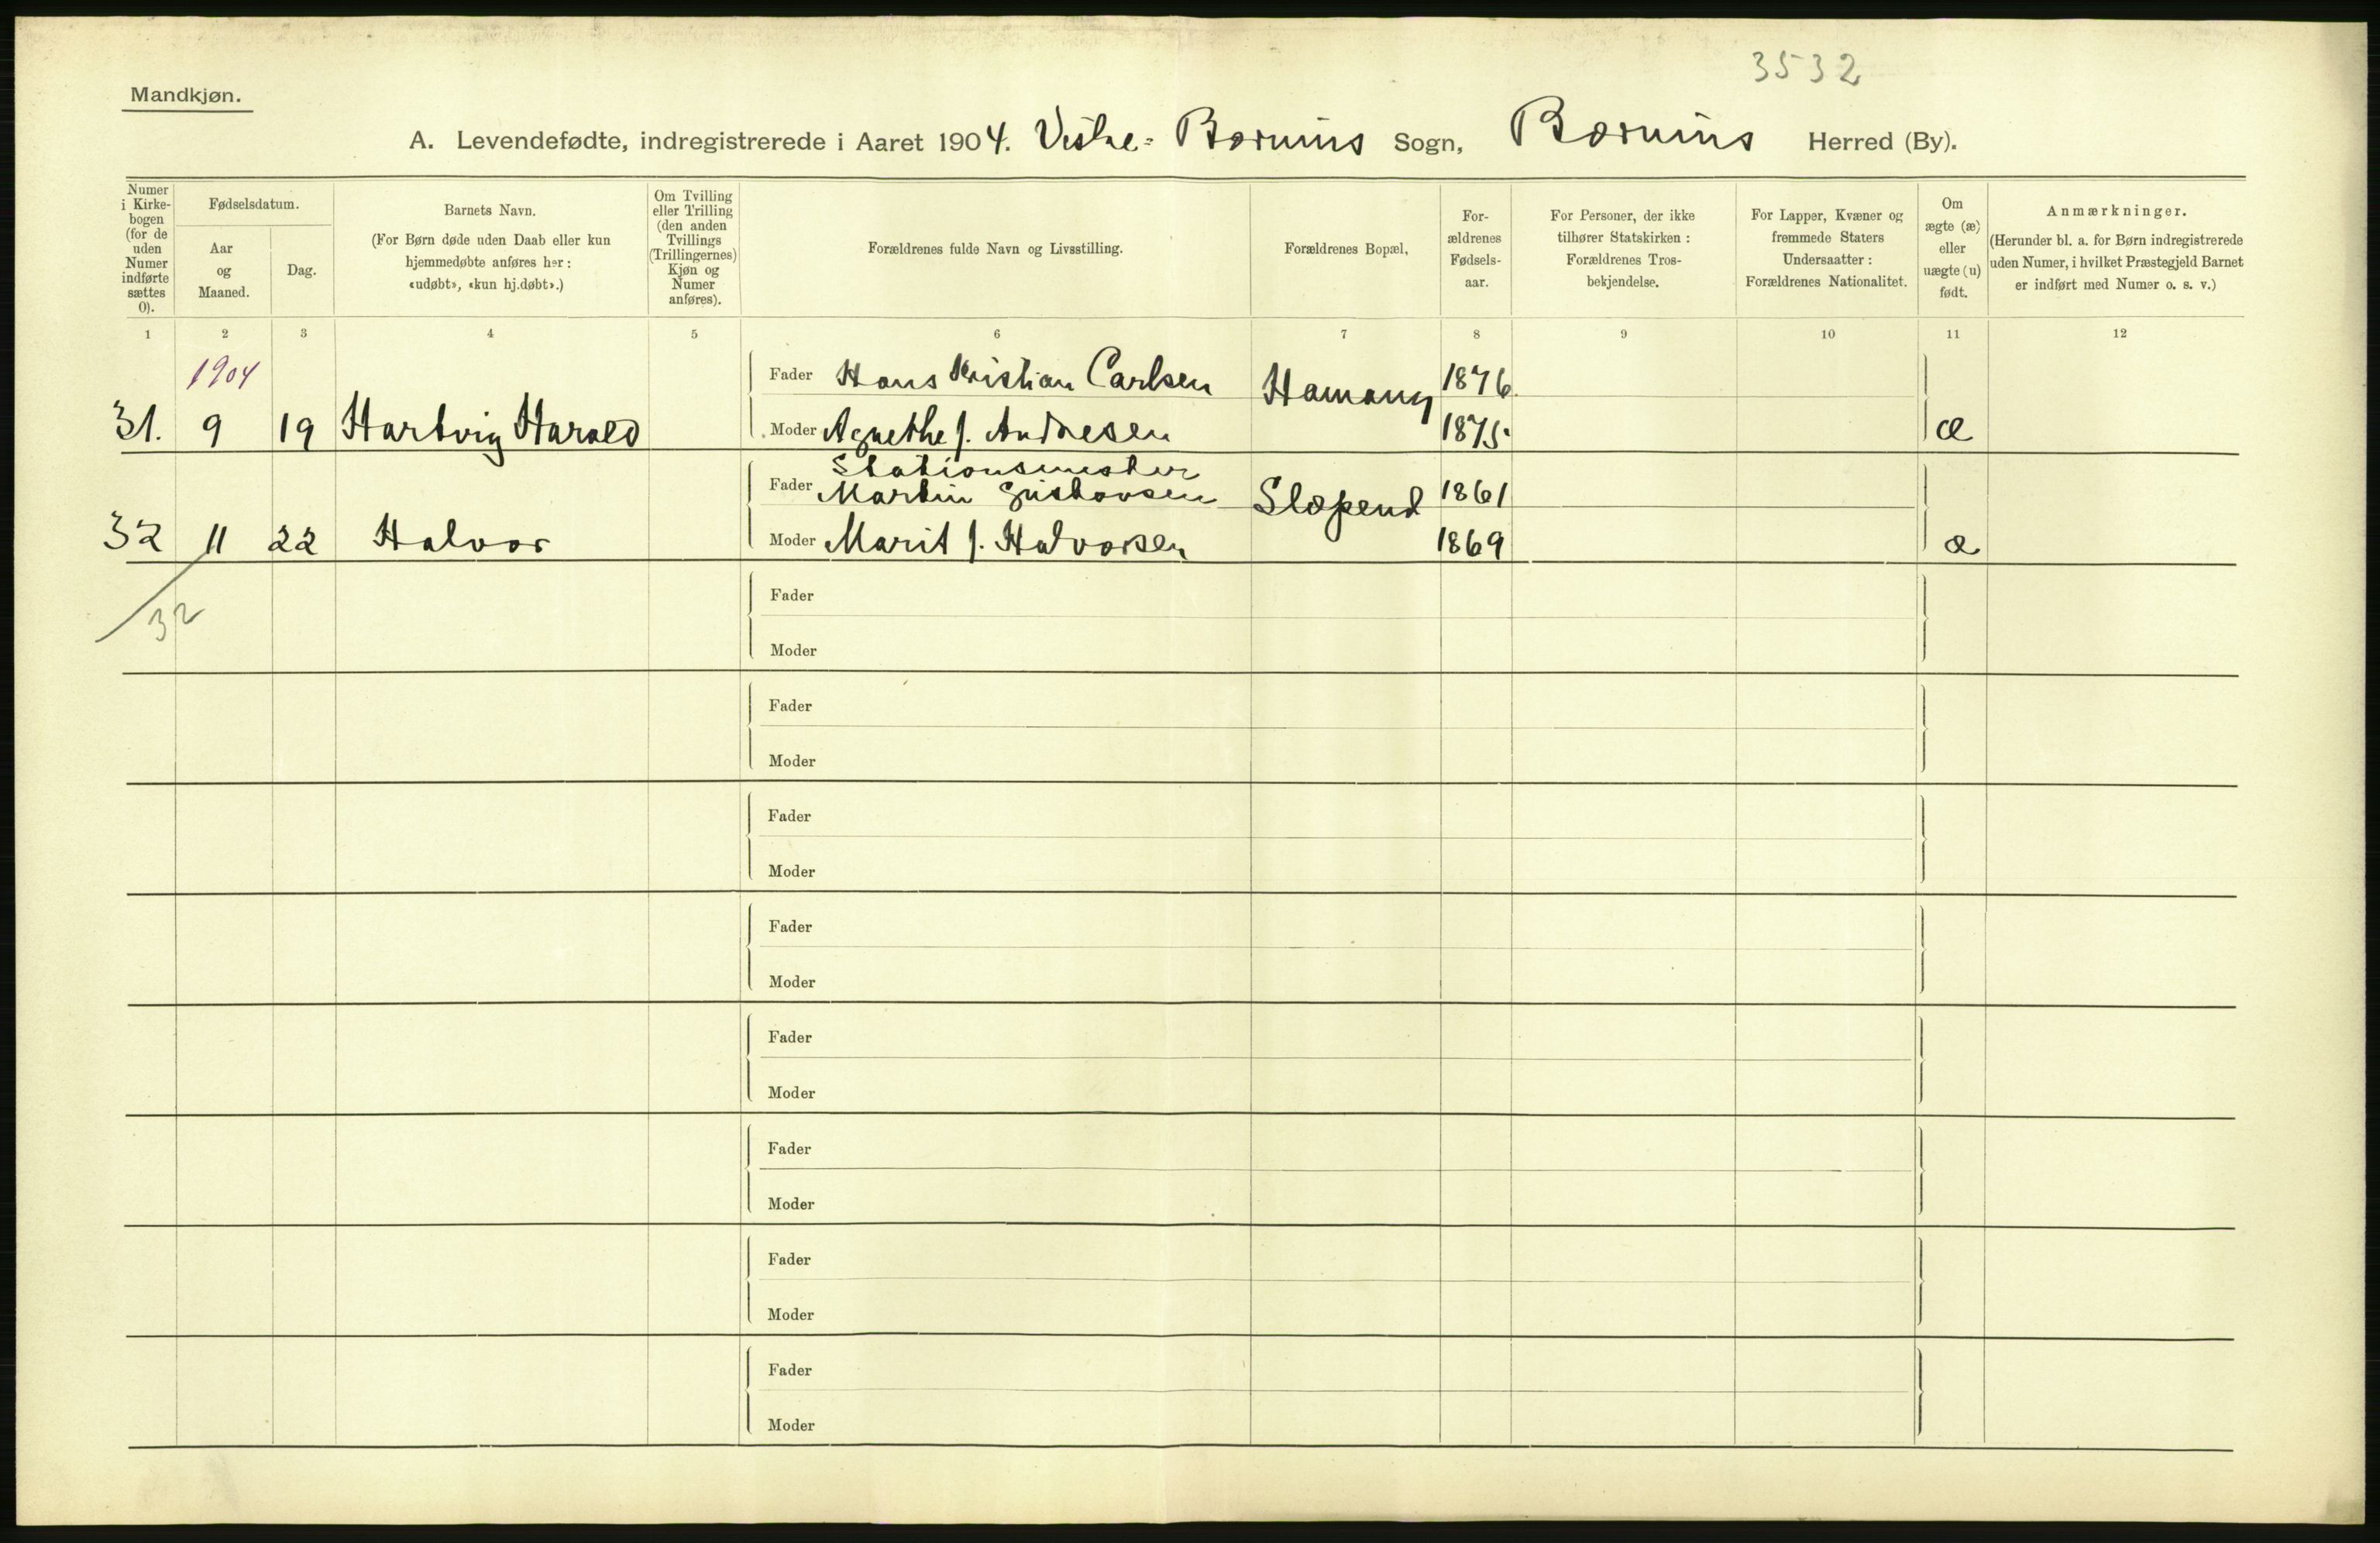 3532
Mandkjøn.
A. Levendefødte, indregistrerede i Aaret 1904. Vestre-Bærums Sogn, Bærums Herred (By).
Numer i Kirke-bogen (for de uden Numer indførte sættes 0).
Fødselsdatum.
Aar og Maaned.
Dag.
Barnets Navn.
(For Børn døde uden Daab eller kun hjemmedøbte anføres her: «udøbt», «kun hj.døbt».)
Om Tvilling eller Trilling (den anden Tvillings (Trillingernes) Kjøn og Numer anføres).
Forældrenes fulde Navn og Livsstilling.
Forældrenes Bopæl,
For-ældrenes Fødsels-aar.
For Personer, der ikke tilhører Statskirken: Forældrenes Tros-bekjendelse.
For Lapper, Kvæner og fremmede Staters Undersaatter: Forældrenes Nationalitet.
Om ægte (æ) eller uægte (u) født.
Anmærkninger.
(Herunder bl. a. for Børn indregistrerede uden Numer, i hvilket Præstegjeld Barnet er indført med Numer o. s. v.)
1 2 3 4 5 6 7 8 9 10 11 12
1904
Fader Hans Kristian Carlsen Hamang 1876
31. 9 19 Hartvig Harald Moder Agnethe f. Andresen 1875 æ
Stationsmester
Fader Martin Gustavsen Slæpend 1861
32 11 22 Halvor Moder Marit f. Halvorsen 1869 æ
Fader
32
Moder
Fader
Moder
Fader
Moder
Fader
Moder
Fader
Moder
Fader
Moder
Fader
Moder
Fader
Moder